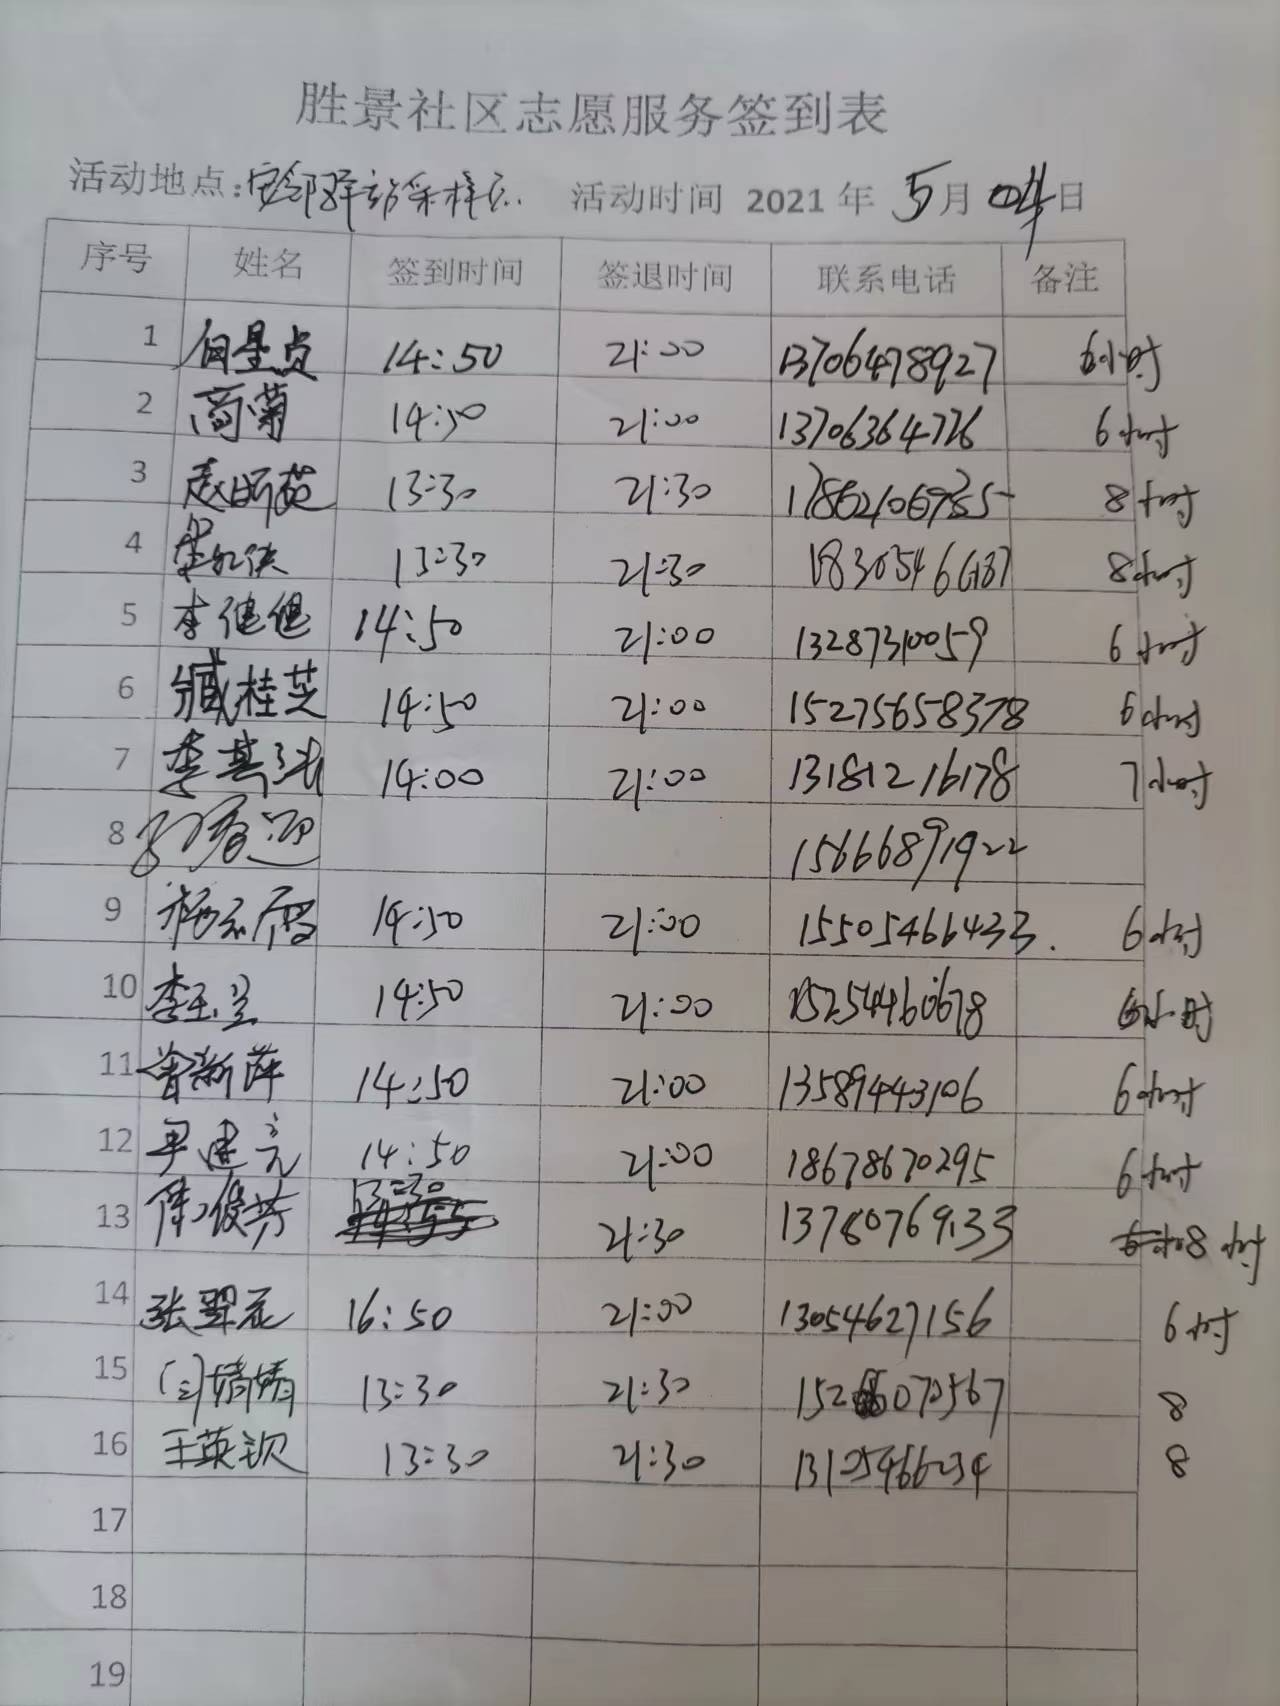 胜景社区志愿服务签到表
活动地点: 活动时间 2021 年 5月 04日
序号 姓名 签到时间 签退时间 联系电话 备注
1 14:50 21:00 13706478927 6小时
2 商菊 14:50 21:00 13706364726 6小时
3 13:30 21:30 8小时
4 13:30 21:30 8小时
5 李继继 14:50 21:00 13287310059 6小时
6 臧桂芝 14:50 21:00 15275658378 6小时
7 李其 14:00 21:00 13181216178 7小时
8 15666891922
9 14:50 21:00 15505466433. 6小时
10 李玉兰 14:50 21:00 15254460678 6小时
11 曾新萍 14:50 21:00 13589443106 6小时
12 尹建亮 14:50 21:00 18678670295 6小时
13 俊芳 13:30 21:30 13780769133 8小时
14 张翠花 16:50 21:00 13054627156 6小时
15 婧婧 13:30 21:30 8
16 王英钦 13:30 21:30 8
17
18
19